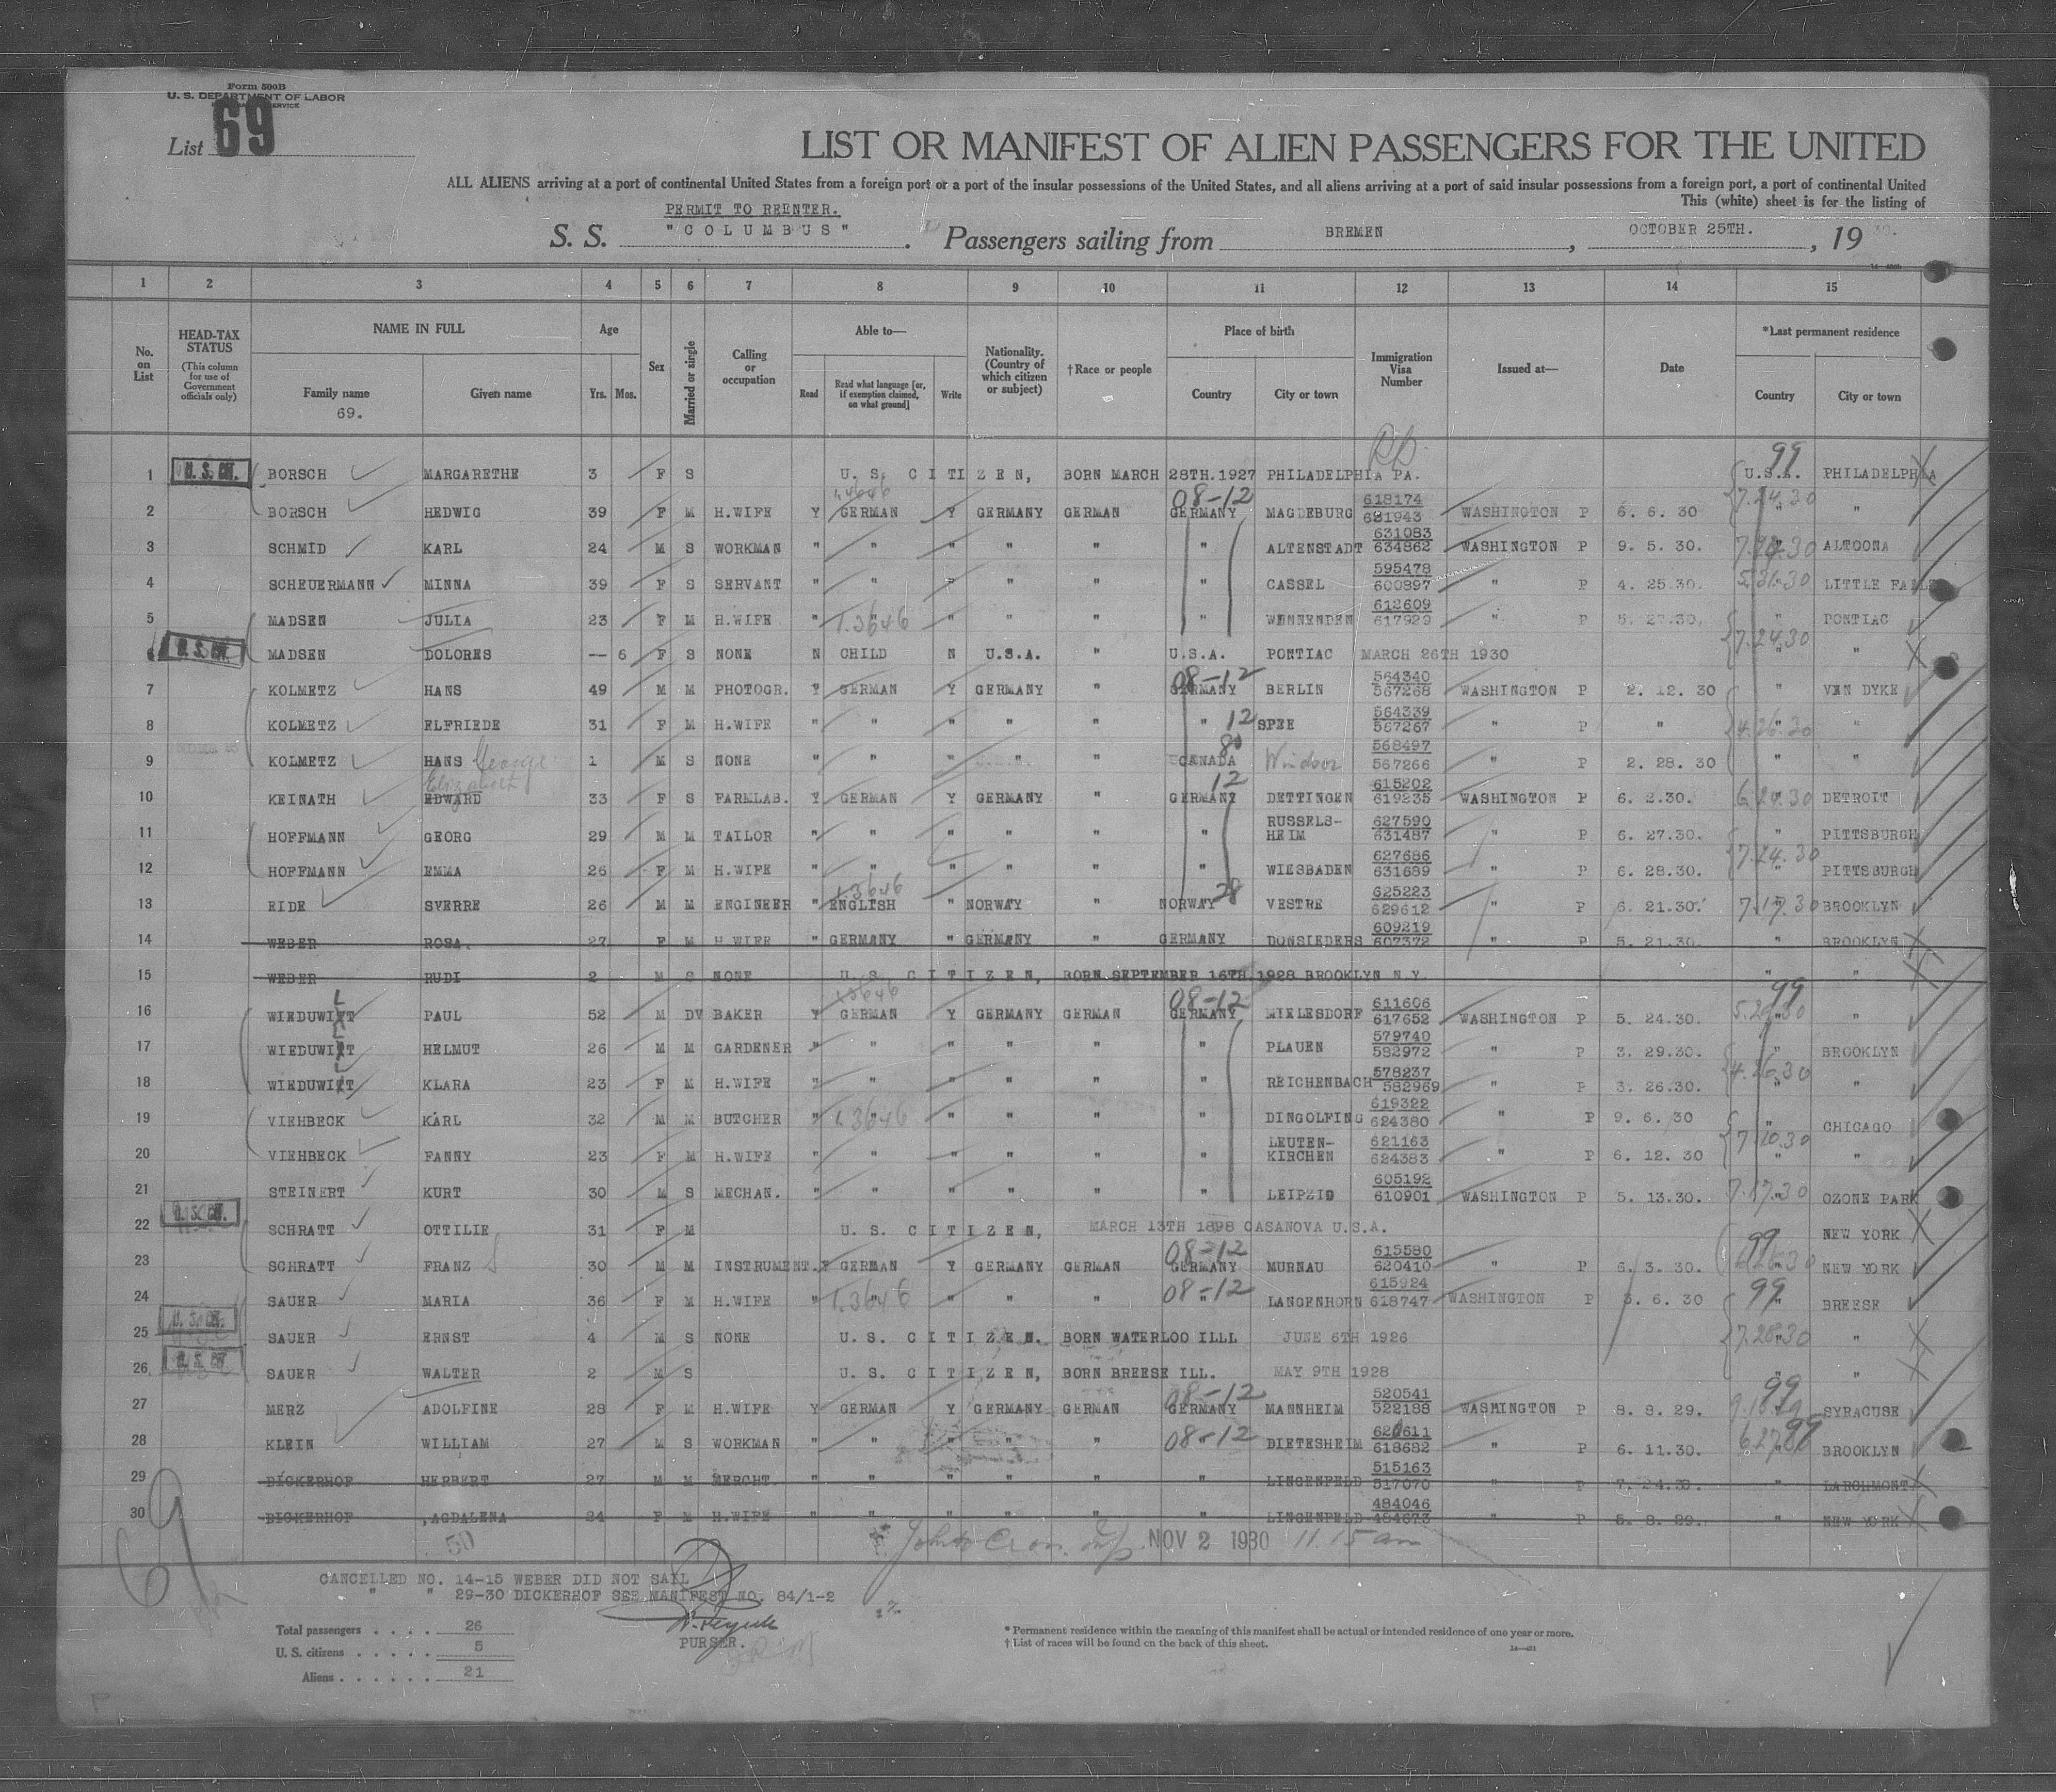 Form 500B
U. S. DEPARTMENT OF LABOR
List 69
LIST OR MANIFEST OF ALIEN PASSENGERS FOR THE UNITED
ALL ALIENS arriving at a port of continental United States from a foreign port or a port of the insular possessions of the United States, and all aliens arriving at a port of said insular possessions from a foreign port, a port of continental United
This (white) sheet is for the listing of
PERMIT TO REENTER.
S. S. "COLUMBUS". Passengers sailing from BREMEN, OCTOBER 25TH., 19
1 2 3 4 5 6 7 8 9 10 11 12 13 14 15
No. on List
HEAD-TAX STATUS (This column for use of Government officials only)
NAME IN FULL
Family name
Given name
69.
Age
Yrs. Mos.
Sex
Married or single
Calling or occupation
Able to—
Read
Read what language [or, if exemption claimed, on what ground]
Write
Nationality. (Country of which citizen or subject)
†Race or people
Place of birth
Country
City or town
Immigration Visa Number
Issued at—
Date
*Last permanent residence
Country
City or town
1 U. S. CIT. BORSCH MARGARETHE 3 F S U. S. CITIZEN, BORN MARCH 28TH.1927 PHILADELPHIA PA. 99 U.S.A. PHILADELPHIA
2 BORSCH HEDWIG 39 F M H.WIFE Y GERMAN Y GERMANY GERMAN 08-12 GERMANY MAGDEBURG 618174 621943 WASHINGTON P 6. 6. 30 7.24.30 " "
3 SCHMID KARL 24 M S WORKMAN " " " " " " ALTENSTADT 631083 634862 WASHINGTON P 9. 5. 30. " ALTOONA
4 SCHEUERMANN MINNA 39 F S SERVANT " " " " " " CASSEL 595478 600897 " P 4. 25.30. LITTLE FALLS
5 MADSEN JULIA 23 F M H.WIFE " 1.3646 " " " " WENNENDEN 612609 617929 " P 5. 27.30. " PONTIAC
6 U. S. CIT. MADSEN DOLORES — 6 F S NONE N CHILD N U.S.A. " U.S.A. PONTIAC MARCH 26TH 1930 7.24.30 " "
7 KOLMETZ HANS 49 M M PHOTOGR. Y GERMAN Y GERMANY " 08-12 GERMANY BERLIN 564340 567268 WASHINGTON P 2. 12. 30 " VEN DYKE
8 KOLMETZ ELFRIEDE 31 F M H.WIFE " " " " " " 12 SPEE 564339 567267 " P " 4.26.30 "
9 KOLMETZ HANS George 1 M S NONE " " " " " 80 CANADA Windsor 568497 567266 " P 2. 28. 30 " "
10 KEINATH Elizabeth EDWARD 33 F S FARMLAB. Y GERMAN Y GERMANY " 12 GERMANY DETTINGEN 615202 619235 WASHINGTON P 6. 2.30. DETROIT
11 HOFFMANN GEORG 29 M M TAILOR " " " " " " RUSSELS-HEIM 627590 631487 " P 6. 27.30. " PITTSBURGH
12 HOFFMANN EMMA 26 F M H.WIFE " " " " " " WIESBADEN 627686 631689 " P 6. 28.30. 7.24.30 " PITTSBURGH
13 EIDE SVERRE 26 M M ENGINEER " 1.3646 ENGLISH " NORWAY " NORWAY 28 VESTRE 625223 629612 " P 6. 21.30. 7.17.30 BROOKLYN
14 WEBER ROSA. 27 F M H.WIFE " GERMANY " GERMANY " GERMANY DONSIEDERS 609219 607372 " P 5. 21.30. " BROOKLYN
15 WEBER RUDI 2 M S NONE U. S. CITIZEN, BORN SEPTEMBER 16TH.1928 BROOKLYN N.Y. " "
16 WIEDUWILT PAUL 52 M DV BAKER Y GERMAN Y GERMANY GERMAN 08-12 GERMANY MIELESDORF 611606 617652 WASHINGTON P 5. 24.30. 99 " "
17 WIEDUWILT HELMUT 26 M M GARDENER " " " " " " PLAUEN 579740 582972 " P 3. 29.30. " BROOKLYN
18 WIEDUWILT KLARA 23 F M H.WIFE " " " " " " REICHENBACH 578237 582969 " P 3. 26.30. 4.26.30 " "
19 VIEHBECK KARL 32 M M BUTCHER " 1.3646 " " " " DINGOLFING 619322 624380 " P 9. 6. 30 " CHICAGO
20 VIEHBECK FANNY 23 F M H.WIFE " " " " " " LEUTEN-KIRCHEN 621163 624383 " P 6. 12. 30 7.10.30 " "
21 STEINERT KURT 30 M S MECHAN. " " " " " " LEIPZIG 605192 610901 WASHINGTON P 5. 13.30. 7.17.30 OZONE PARK
22 U. S. CIT. SCHRATT OTTILIE 31 F M U. S. CITIZEN, MARCH 13TH 1898 CASANOVA U.S.A. NEW YORK
23 SCHRATT FRANZ 30 M M INSTRUMENT. Y GERMAN Y GERMANY GERMAN 08-12 GERMANY MURNAU 615580 620410 " P 6. 3. 30. 99 NEW YORK
24 SAUER MARIA 36 F M H.WIFE " 1.3646 " " " 08-12 " LANGENHORN 615924 618747 WASHINGTON P 6. 30 99 " BREESE
25 U. S. CIT. SAUER ERNST 4 M S NONE U. S. CITIZEN. BORN WATERLOO ILLL JUNE 6TH 1926 7.28.30 " "
26 U. S. CIT. SAUER WALTER 2 M S U. S. CITIZEN, BORN BREESE ILL. MAY 9TH 1928 " "
27 MERZ ADOLFINE 28 F M H.WIFE Y GERMAN Y GERMANY GERMAN 08-12 GERMANY MANNHEIM 520541 522188 WASHINGTON P 8. 8. 29. 99 SYRACUSE
28 KLEIN WILLIAM 27 M S WORKMAN " " " " " 08-12 " DIETESHEIM 620611 618682 " P 6. 11.30. 99 BROOKLYN
29 DICKERHOF HERBERT 27 M M MERCHT. " " " " " " LINGENFELD 515163 517070 " P 7. 24.30. " LARCHMONT
30 DICKERHOF ,AGDALENA 24 F M H.WIFE " " " " " " LINGENFELD 484046 484673 " P 5. 8. 29. " NEW YORK
50 NOV 2 1930 11.15 am
69
CANCELLED NO. 14-15 WEBER DID NOT SAIL
" " 29-30 DICKERHOF SEE MANIFEST NO. 84/1-2
Total passengers . . . . 26
U. S. citizens . . . . . 5
Aliens . . . . . . 21
PURSER.
* Permanent residence within the meaning of this manifest shall be actual or intended residence of one year or more.
† List of races will be found on the back of this sheet.